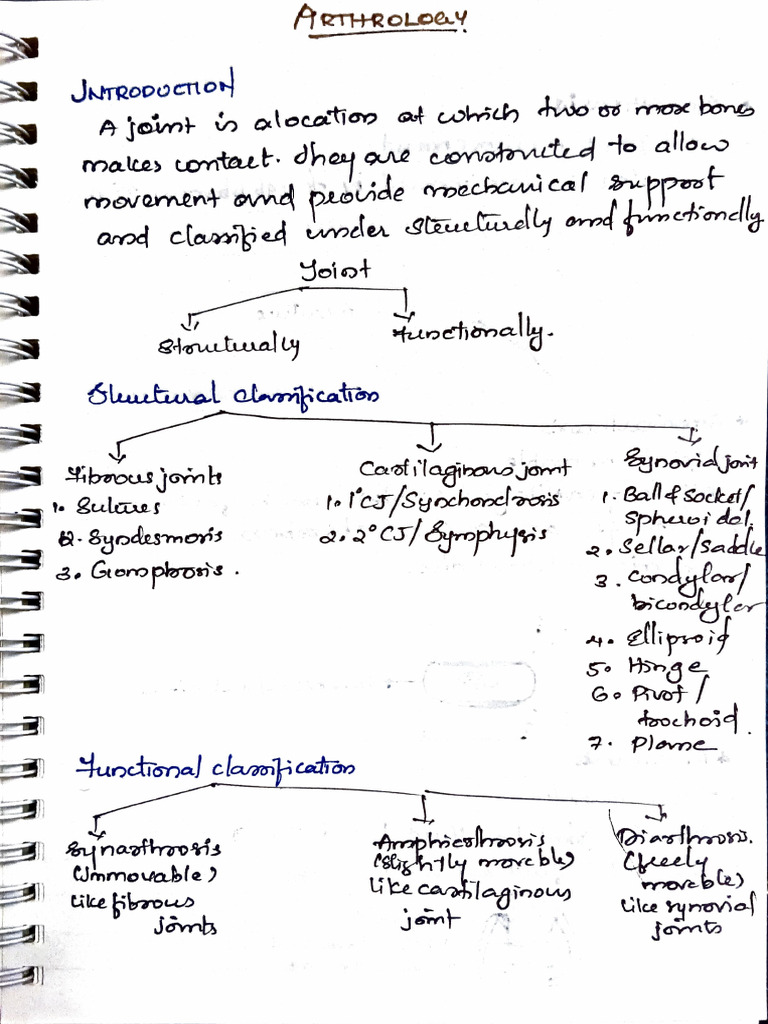 ARTHROLOGY
INTRODUCTION
A joint is a location at which two or more bones
makes contact. They are constructed to allow
movement and provide mechanical support
and classified under structurally and functionally
Joint
Structurally
functionally.
Structural classification
Fibrous joints
1. Sutures
2. Syndesmosis
3. Gomphosis.
Cartilaginous joint
1. 1° CJ/Synchondrosis
2. 2° CJ/Symphysis
Synovial joint
1. Ball & Socket/
Spheroidal.
2. Sellar/Saddle
3. Condylar/
bicondylar
4. Ellipsoid
5. Hinge
6. Pivot/
trochoid.
7. Plane
Functional classification
Synarthrosis
(Immovable)
like fibrous
joints
Amphiarthrosis
(Slightly movable)
like cartilaginous
joint
Diarthrosis.
(freely
movable)
like synovial
joints